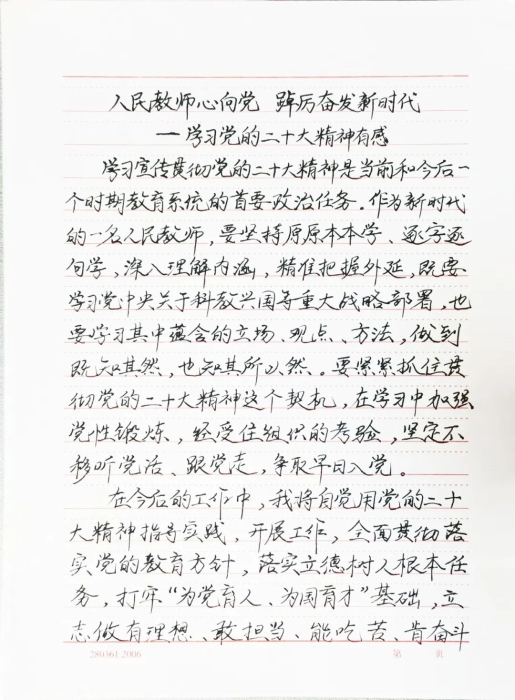 人民教师心向党 踔厉奋发新时代
—学习党的二十大精神有感
学习宣传贯彻党的二十大精神是当前和今后一
个时期教育系统的首要政治任务。作为新时代
的一名人民教师，要坚持原原本本学、逐字逐
句学，深入理解内涵，精准把握外延，既要
学习党中央关于科教兴国等重大战略部署，也
要学习其中蕴含的立场、观点、方法，做到
既知其然，也知其所以然。要紧紧抓住贯
彻党的二十大精神这个契机，在学习中加强
党性锻炼，经受住组织的考验，坚定不
移听党话、跟党走，争取早日入党。
在今后的工作中，我将自觉用党的二十
大精神指导实践，开展工作，全面贯彻落
实党的教育方针，落实立德树人根本任
务，打牢“为党育人、为国育才”基础，立
志做有理想、敢担当、能吃苦、肯奋斗
280361.2006 第 页